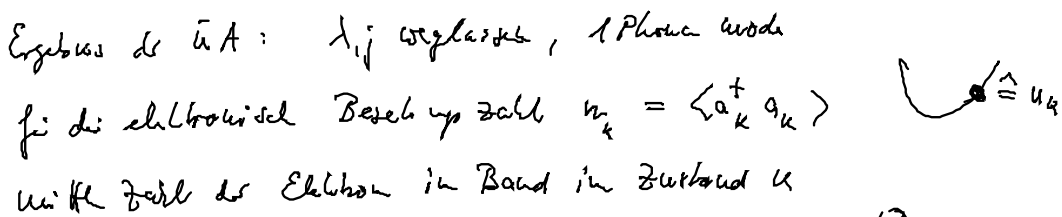 Ergebnis der ÜA: λ_ij weglassen, 1 Phonon mode
für die elektronisch Besetzungszahl n_k = ⟨a_k^† a_k⟩ ≙ n_k
mittl Zahl der Elektron im Band im Zustand k